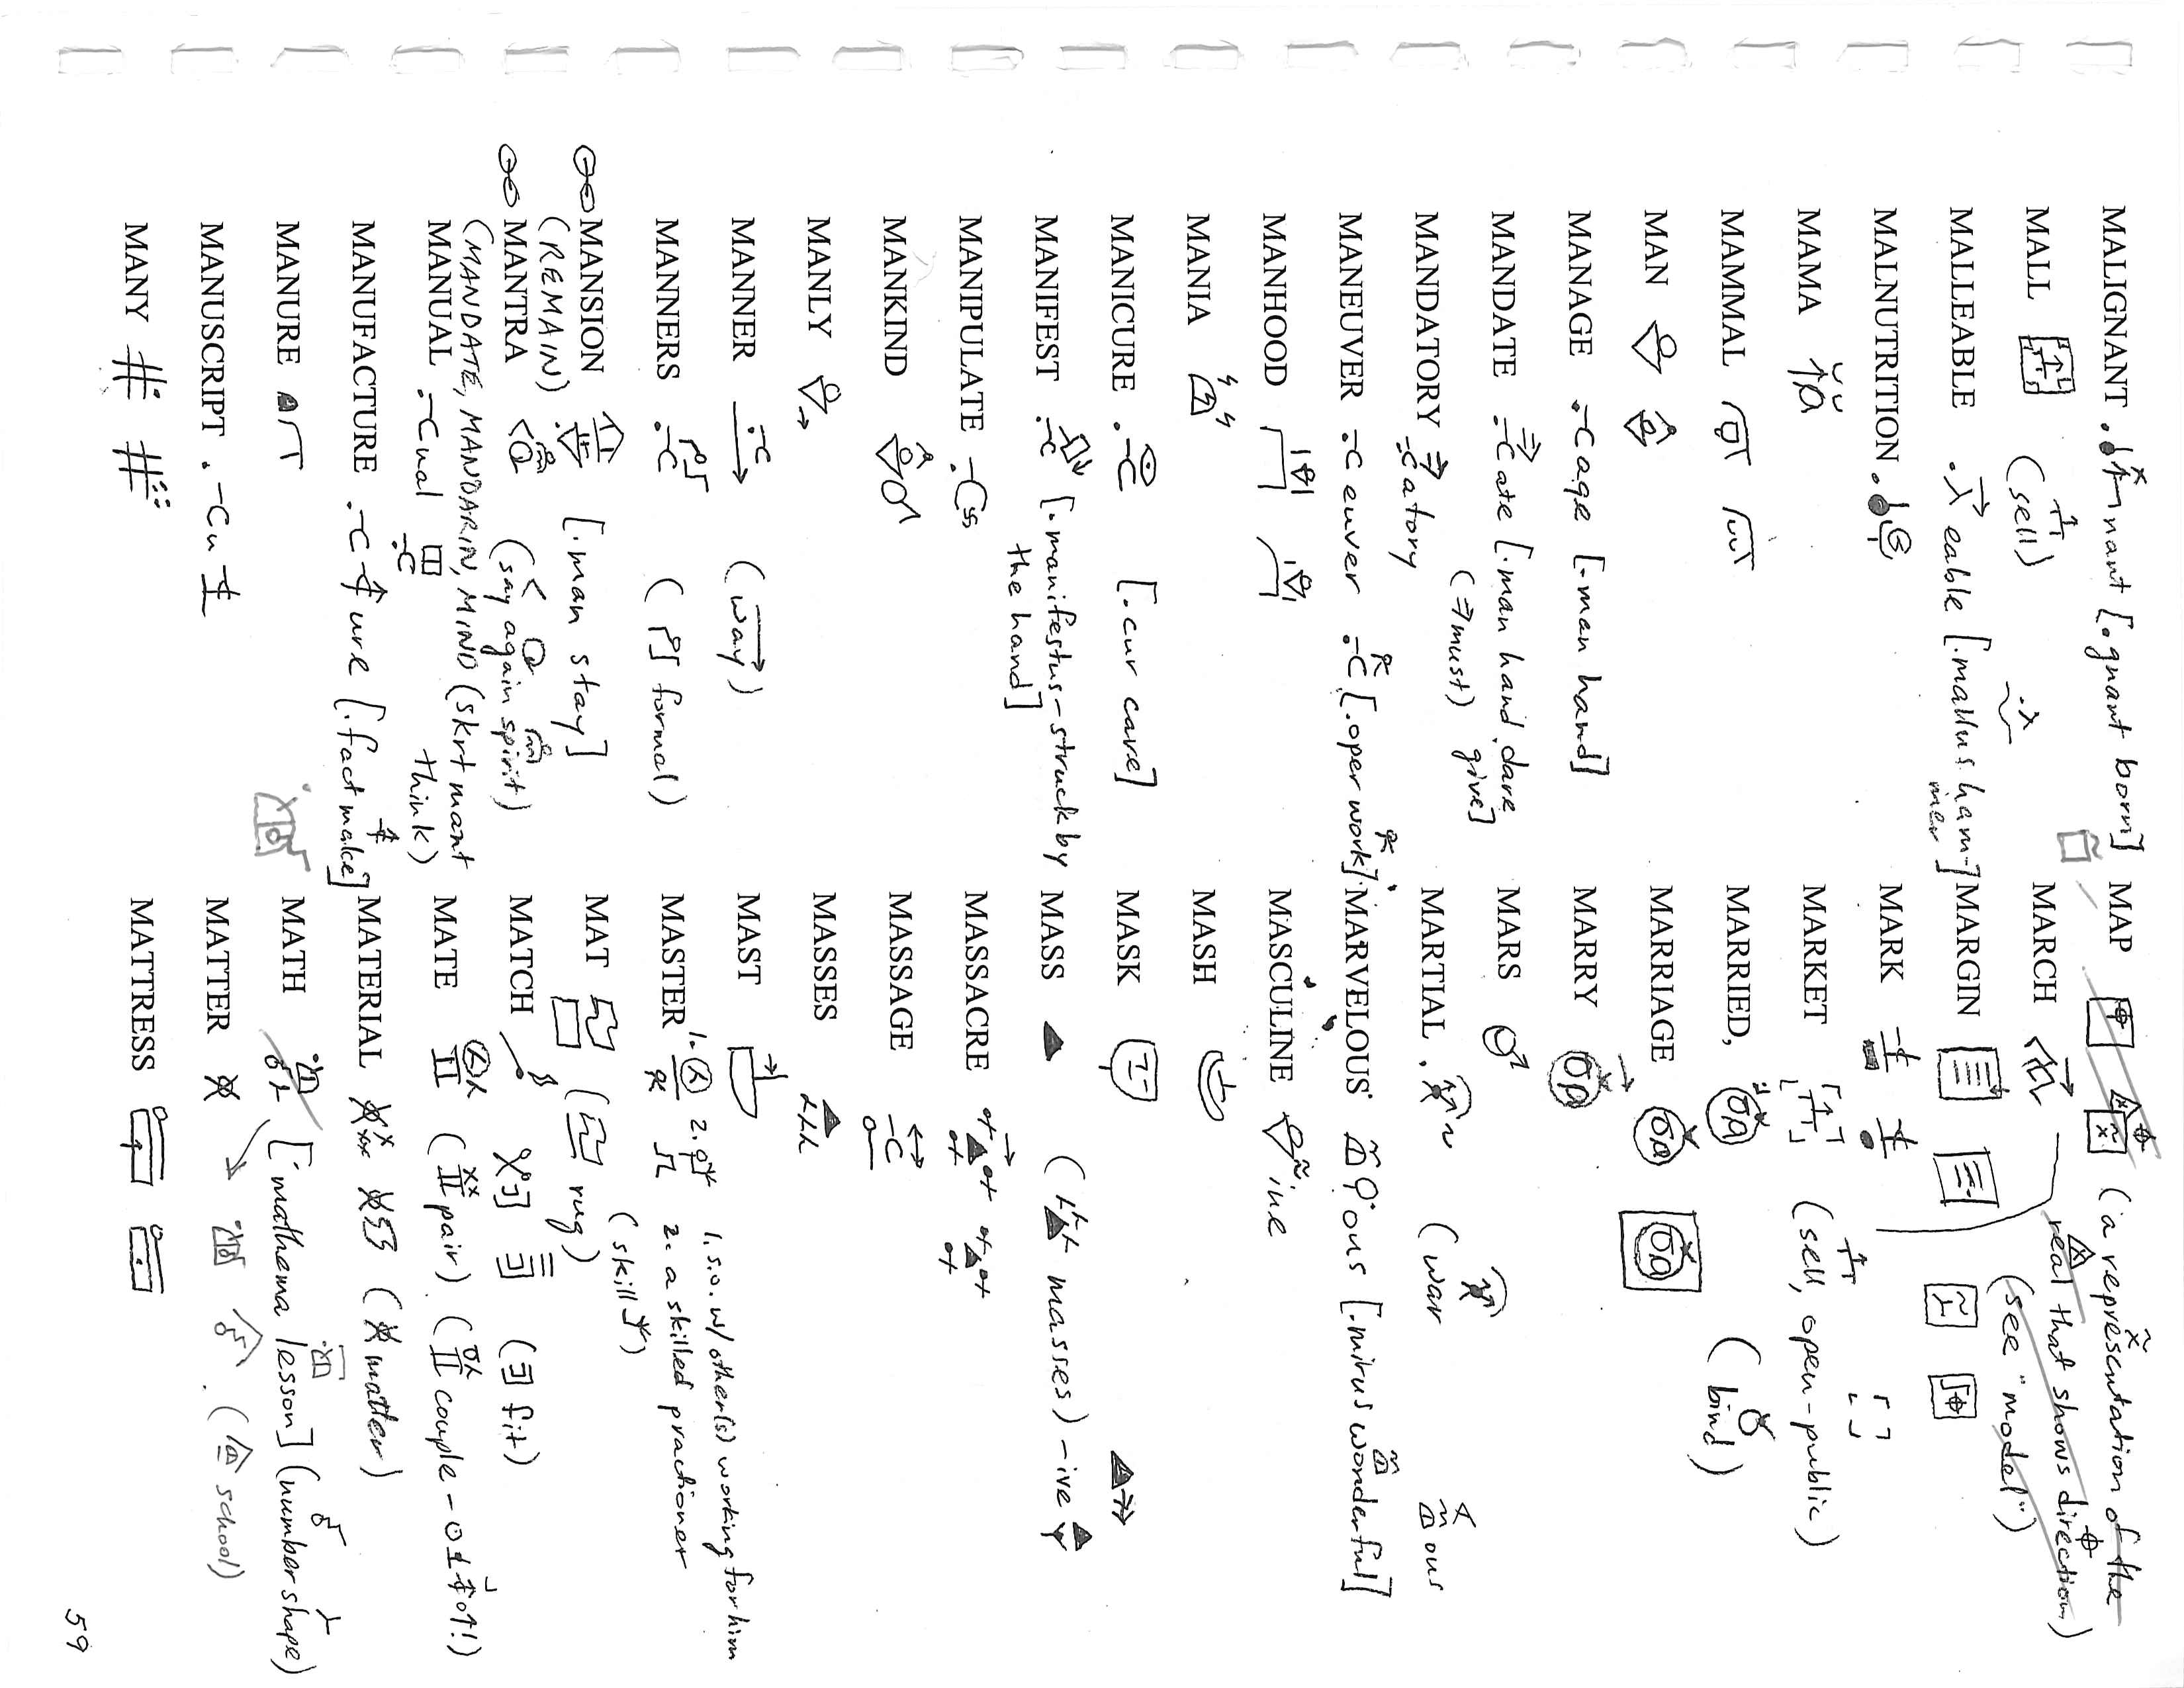 MALIGNANT nant [.gnant born]
MALL (sell)
MALLEABLE eable [.mallus ham- mer]
MALNUTRITION
MAMA
MAMMAL
MAN
MANAGE .-C age [.man hand]
MANDATE .-C ate [.man hand.dare give]
(must)
MANDATORY -C atory
MANEUVER .-C euver .-C [.oper work]
MANHOOD
MANIA
MANICURE .-C [.cur care]
MANIFEST .-C [.manifestus-struck by
the hand]
MANIPULATE .-C
MANKIND
MANLY
MANNER .-C (way)
MANNERS .-C (formal)
MANSION [.man stay]
(REMAIN)
MANTRA (say again spirit)
(MANDATE, MANDARIN, MIND (skrt mant
think)
MANUAL .-C ual .-C
MANUFACTURE .-C ure [.fact make]
MANURE
MANUSCRIPT .-C u
MANY
MAP (a representation of the
real that shows direction)
(see "model")
MARCH
MARGIN
MARK
MARKET (sell, open-public)
MARRIED, (bind)
MARRIAGE
MARRY
MARS
MARTIAL (war
MARVELOUS ous [.mirus wonderful] ous
MASCULINE ine
MASH
MASK
MASS (masses) -ive
MASSACRE
MASSAGE -C
MASSES
MAST
MASTER 1. 2. 1. s.o. w/ other(s) working for him
2. a skilled practioner
(skill)
MAT (rug)
MATCH (fit)
MATE (pair) (couple -
MATERIAL (matter)
MATH [mathema lesson] (number shape)
MATTER (school)
MATTRESS
59